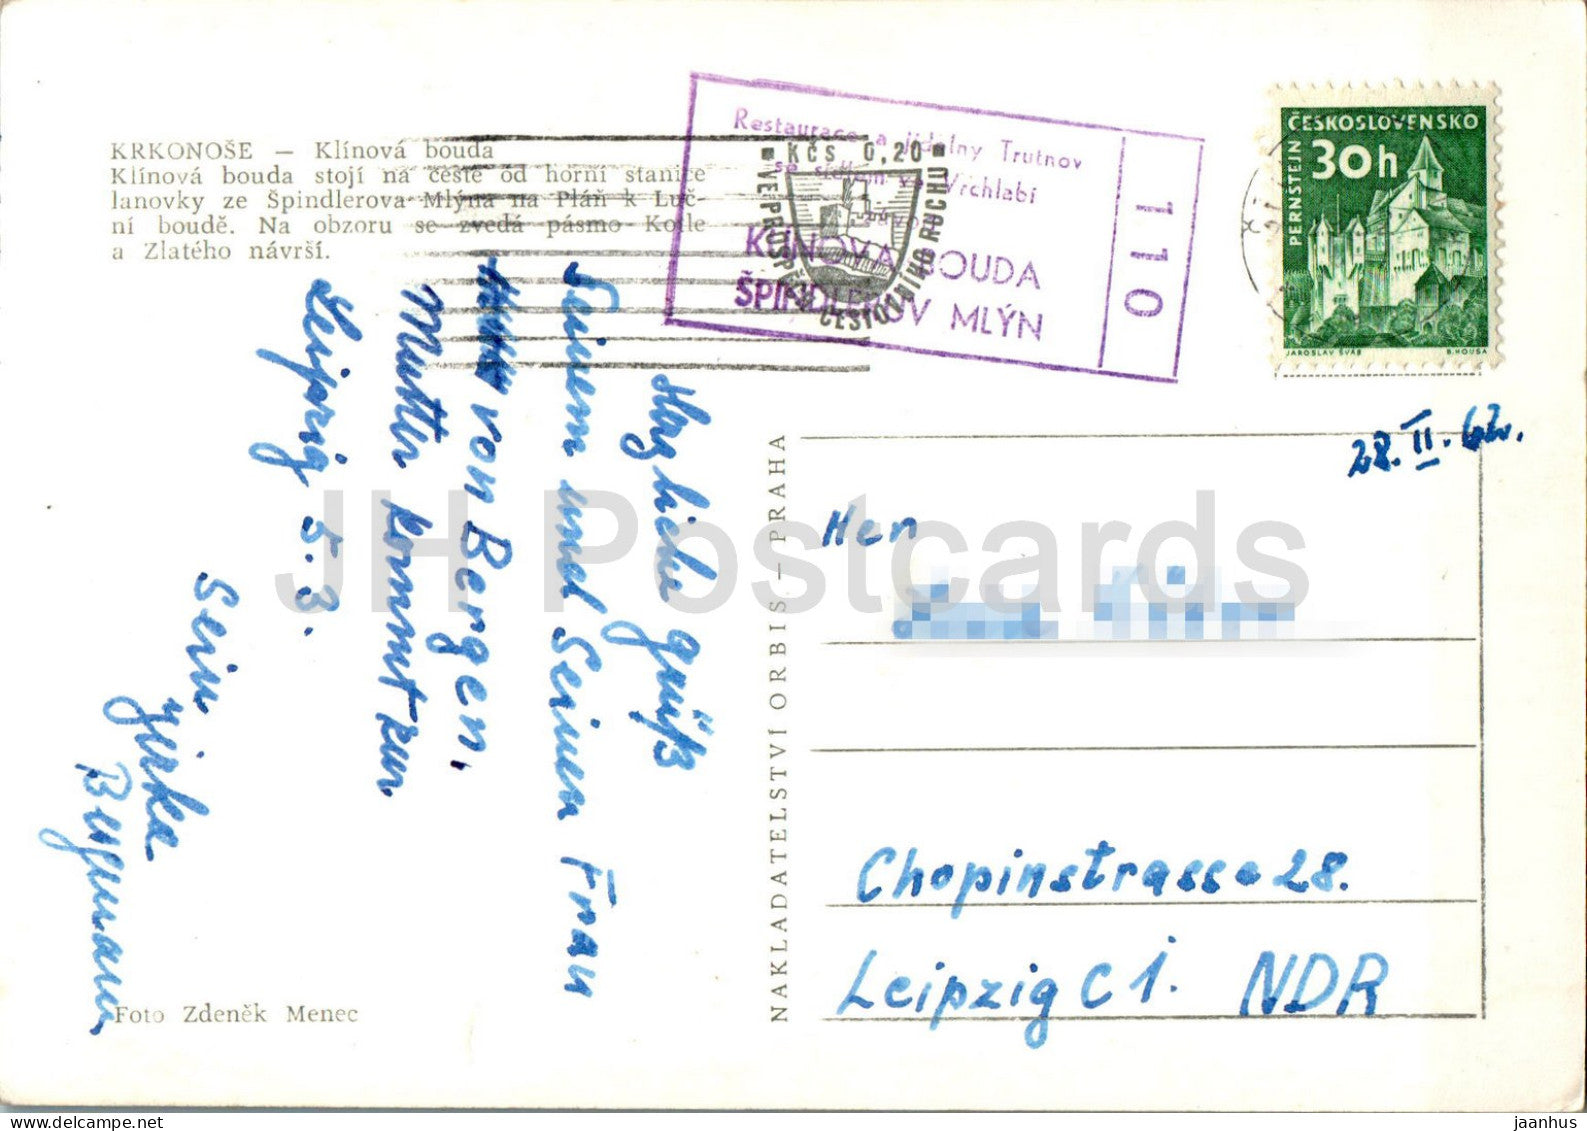 KRKONOŠE — Klínová bouda
Klínová bouda stojí na cestě od horní stanice
lanovky ze Špindlerova Mlýna na Pláň k Luč-
ní boudě. Na obzoru se zvedá pásmo Kotle
a Zlatého návrší.
KČS 0,20
VE PROSPĚCH CESTOVNÍHO RUCHU
Restaurace a jídelny Trutnov
se sídlem ve Vrchlabí
KLÍNOVÁ BOUDA
ŠPINDLERŮV MLÝN
110
ČESKOSLOVENSKO
30h
PERNŠTEJN
JAROSLAV ŠVÁB
B. HOUSA
28. II. 62.
Herzliche grüß
Seinem und Seiner Frau
von Bergen.
Mutti kommt zur
Leipzig 5.3.
Sein
Jirka
Bergmann
Foto Zdeněk Menec
NAKLADATELSTVÍ ORBIS — PRAHA
Herr
Chopinstrasse 28.
Leipzig C 1. NDR
JH Postcards
www.delcampe.net
jaanhus